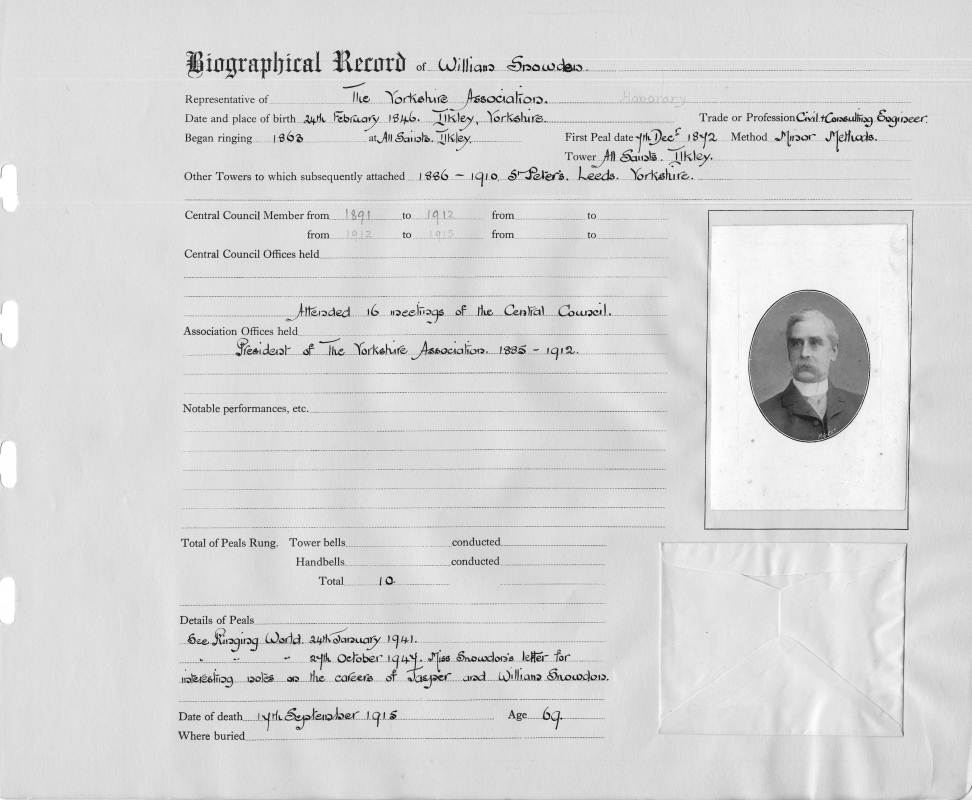 Biographical Record of William Snowdon.
Representative of The Yorkshire Association. Honorary
Date and place of birth 24th February 1846. Ilkley, Yorkshire. Trade or Profession Civil & Consulting Engineer.
Began ringing 1863 at All Saints. Ilkley. First Peal date 7th Decr 1872 Method Minor Methods.
Tower All Saints. Ilkley.
Other Towers to which subsequently attached 1886 - 1910. St Peter's. Leeds. Yorkshire.
Central Council Member from 1891 to 1912 from to
from 1912 to 1915 from to
Central Council Offices held
Attended 16 meetings of the Central Council.
Association Offices held
President of The Yorkshire Association. 1885 - 1912.
Notable performances, etc.
Total of Peals Rung. Tower bells conducted
Handbells conducted
Total 10.
Details of Peals
See Ringing World. 24th January 1941.
" " " 27th October 1947. Miss Snowdon's letter for
interesting notes on the careers of Jasper and William Snowdon.
Date of death 17th September 1915 Age 69.
Where buried